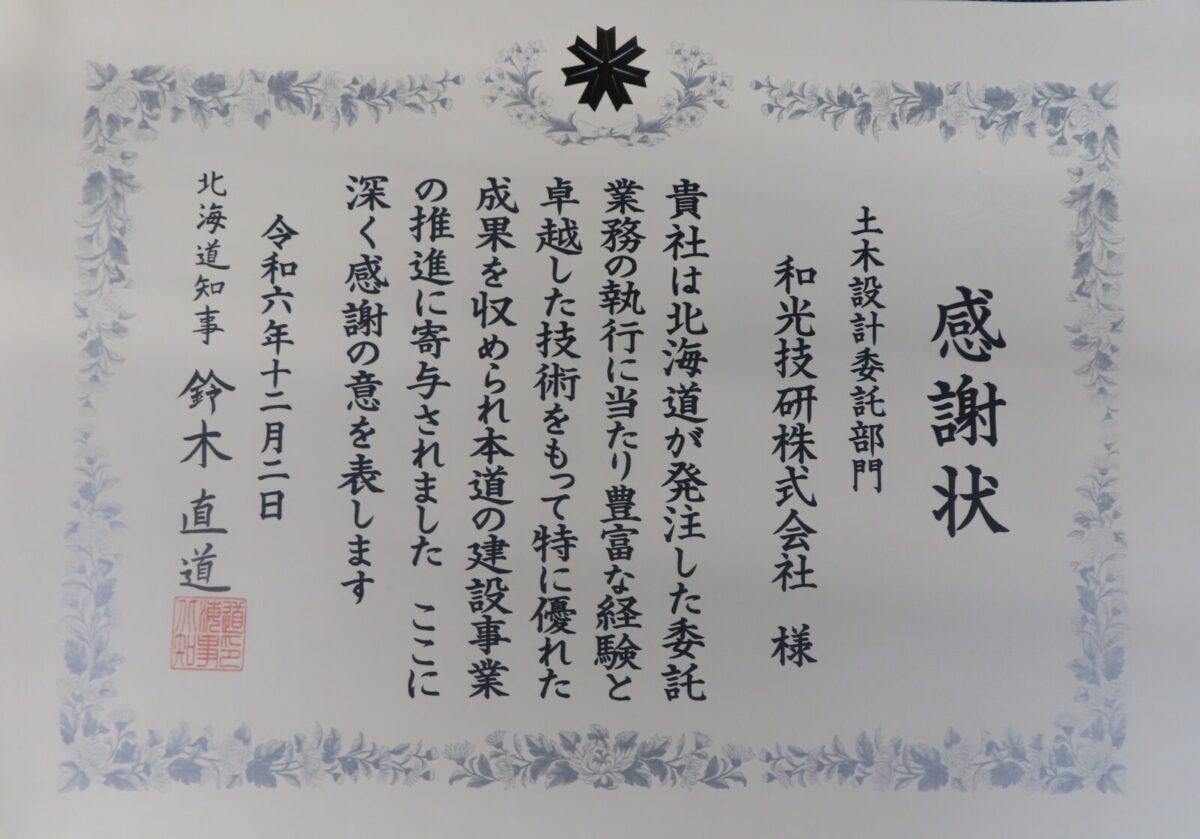 感謝状
土木設計委託部門
和光技研株式会社 様
貴社は北海道が発注した委託
業務の執行に当たり豊富な経験と
卓越した技術をもって特に優れた
成果を収められ本道の建設事業
の推進に寄与されました ここに
深く感謝の意を表します
令和六年十二月二日
北海道知事 鈴木直道